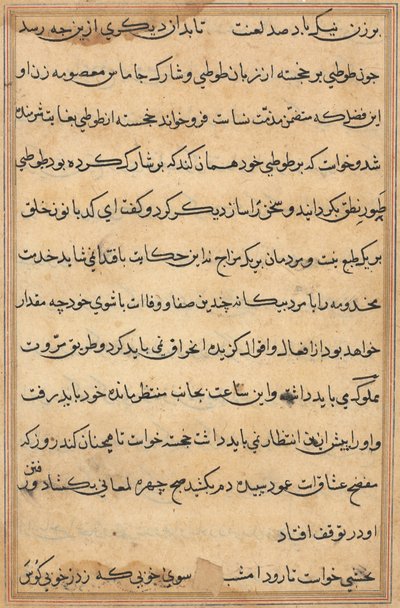 بر زن نیک باد صد لعنت تا بد از دیکری ازین چه رسد
چون طوطی بر خجسته از زبان طوطی و شارک جاماس معصومه زن او
این فضل که متضمن مذمت نساست فرو خواند خجسته از طوطی بغایت شرمنده
شد و خواست که بر طوطی خود همان کند که بر شارک کرده بود طوطی
طیور نطق بکردانید و سخن را ساز دیکر کرد و کفت ای کدبانو نخلق
بر یک طبع نیست و مردمان بر یک مزاج نه این حکایت شاید خدمت
مخدومه را با مرد بیکانه چندین صفا و وفاست با شوی خود چه مقدار
خواهد بود از افعال و اقوال کزیده انحراف نمی باید کرد و طریق مروت
مملوکی باید داشت و این ساعت بجانب منتظر مانده خود باید رفت
و او را پیش ازین انتظار نمی باید داشت خجسته خواست تا همچنان کند روز که
مفضح عشاق است عود سپیده دم بکشید صبح چهره لمعانی بکشاد رفتن
او در توقف افتاد
نخشبی خواست تا رود امشب سوی خوبی که زد ز خوبی کوس